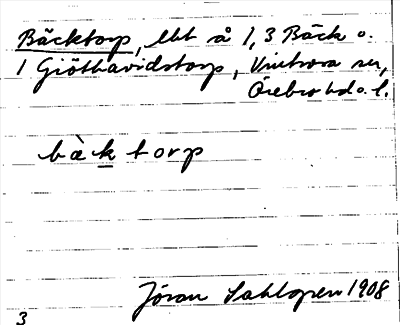 Bäcktorp, lht å 1, 3 Bäck o.
1 Giöthavidstorp, Vintrosa sn,
Örebro hd o. l.
bàk torp
Jöran Sahlgren 1908
3